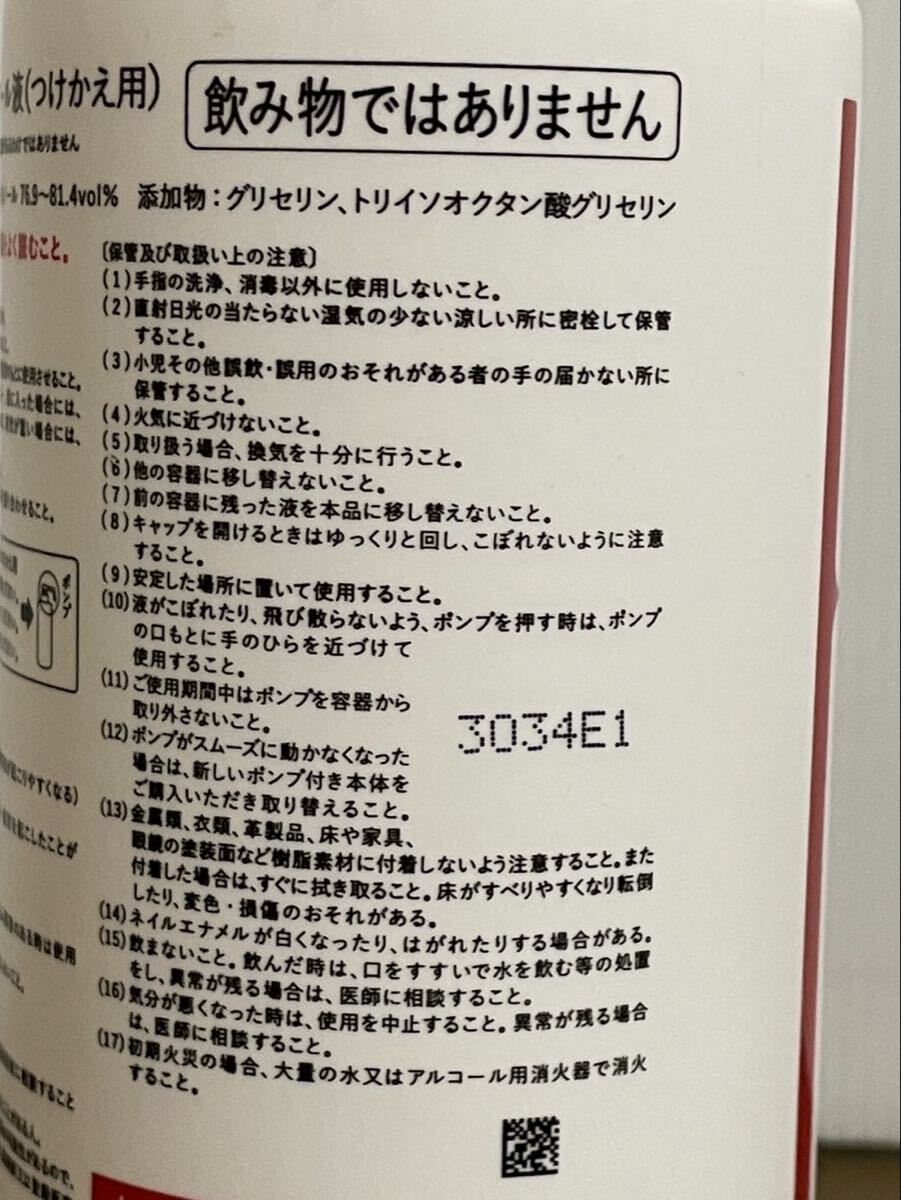 ール液(つけかえ用)
飲み物ではありません
ではありません
ール 76.9〜81.4vol% 添加物:グリセリン、トリイソオクタン酸グリセリン
よく読むこと。
〔保管及び取扱い上の注意〕
(1)手指の洗浄、消毒以外に使用しないこと。
(2)直射日光の当たらない湿気の少ない涼しい所に密栓して保管
すること。
(3)小児その他誤飲・誤用のおそれがある者の手の届かない所に
保管すること。
に使用させること。
に入った場合には、
が重い場合には、
(4)火気に近づけないこと。
(5)取り扱う場合、換気を十分に行うこと。
(6)他の容器に移し替えないこと。
(7)前の容器に残った液を本品に移し替えないこと。
い合わせること。
(8)キャップを開けるときはゆっくりと回し、こぼれないように注意
すること。
(9)安定した場所に置いて使用すること。
ポンプ
(10)液がこぼれたり、飛び散らないよう、ポンプを押す時は、ポンプ
の口もとに手のひらを近づけて
使用すること。
(11)ご使用期間中はポンプを容器から
取り外さないこと。
3034E1
(12)ポンプがスムーズに動かなくなった
場合は、新しいポンプ付き本体を
ご購入いただき取り替えること。
こりやすくなる)
(13)金属類、衣類、革製品、床や家具、
眼鏡の塗装面など樹脂素材に付着しないよう注意すること。また
付着した場合は、すぐに拭き取ること。床がすべりやすくなり転倒
したり、変色・損傷のおそれがある。
を起こしたことが
(14)ネイルエナメルが白くなったり、はがれたりする場合がある。
(15)飲まないこと。飲んだ時は、口をすすいで水を飲む等の処置
をし、異常が残る場合は、医師に相談すること。
のある時は使用
(16)気分が悪くなった時は、使用を中止すること。異常が残る場合
は、医師に相談すること。
(17)初期火災の場合、大量の水又はアルコール用消火器で消火
すること。
に相談すること
があるので、